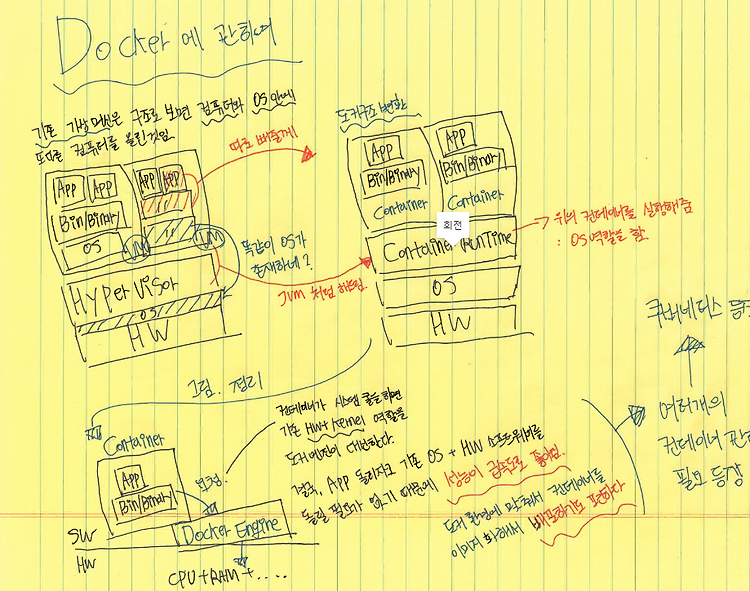 Docker에 관하여
기존 가상머신은 구조로 보면 컴퓨터와 OS 안에
또다른 컴퓨터를 올린것임.
App App App App
Bin/Binary
OS
VM VM
Hypervisor
OS
HW
따로 빼줄게
똑같이 OS가
존재하네?
JVM 처럼 해드림.
도커구조 변환
App App
Bin/Binary Bin/Binary
Container Container
회전
Container RunTime
OS
HW
위의 컨테이너를 실행해줌
: OS역할을 함.
그림. 정리
Container
App
Bin/Binary
요청.
Docker Engine
SW
HW
CPU+RAM+....
컨테이너가 시스템 콜을하면
기존 HW+Kernel 역할을
도커엔진이 대신한다.
결국, App 돌리자고 기존 OS + HW 소프트웨어를
돌릴 필요가 없기 때문에 성능이 급속도로 좋아짐.
도커 환경에 맞춰서 컨테이너를
이미지 화해서 배포하기도 편하다
쿠버네티스 등
여러개의
컨테이너 관
필요 등장